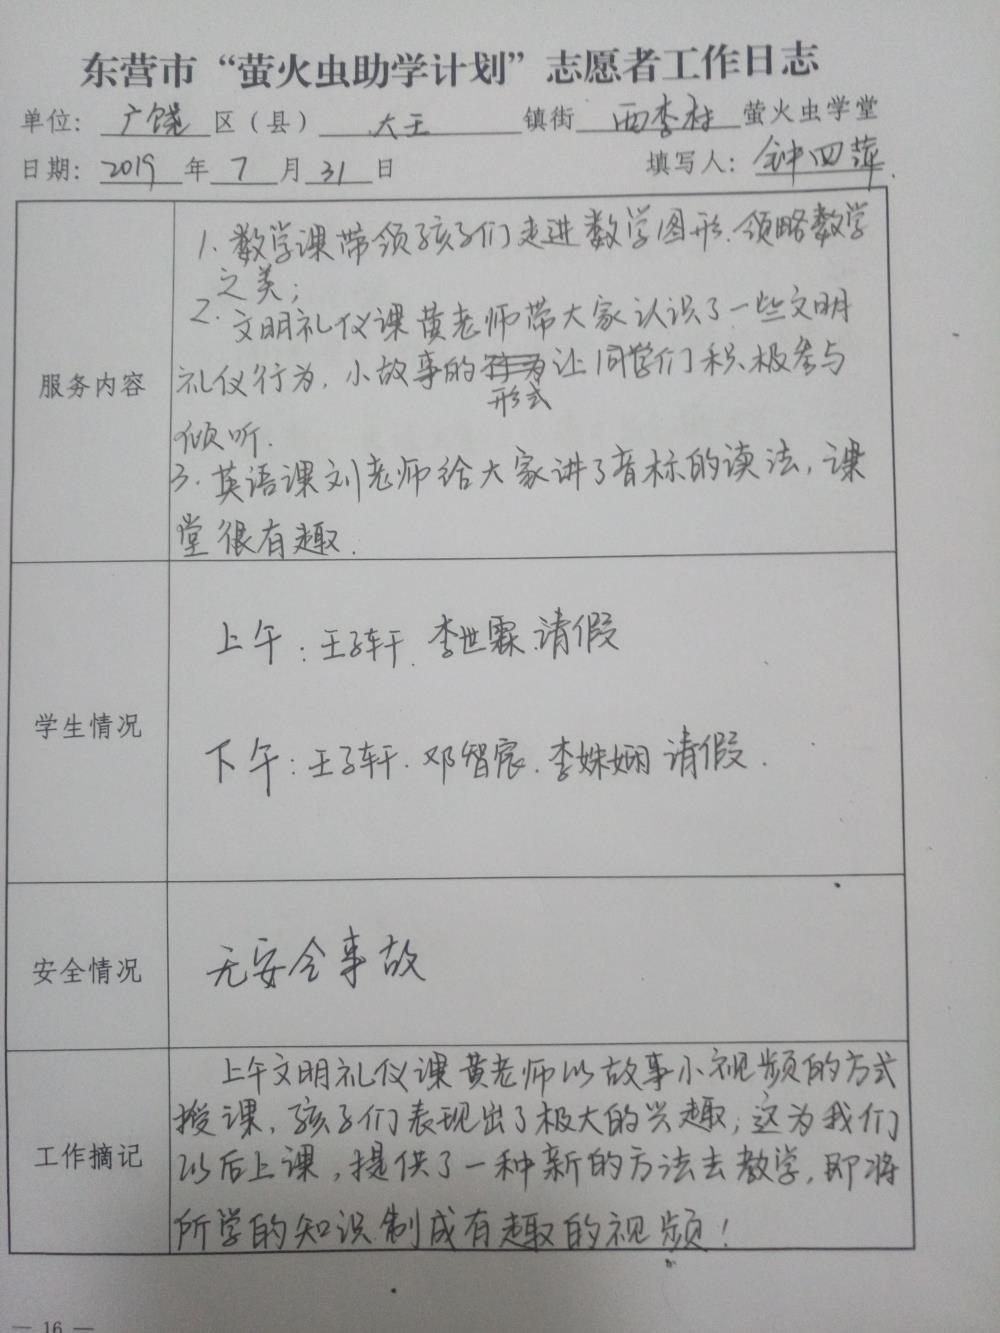 东营市“萤火虫助学计划”志愿者工作日志
单位：广饶区（县）大王镇街西李村萤火虫学堂
日期：2019年7月31日 填写人：钟四萍
服务内容
1. 数学课带领孩子们走进数学图形、领略数学
之美；
2. 文明礼仪课黄老师带大家认识了一些文明
礼仪行为，小故事的形式让同学们积极参与
倾听.
3. 英语课刘老师给大家讲了音标的读法，课
堂很有趣.
学生情况
上午：王子轩.李世霖.请假
下午：王子轩.邓智宸.李姝娴请假.
安全情况
无安全事故
工作摘记
上午文明礼仪课黄老师以故事小视频的方式
授课，孩子们表现出了极大的兴趣；这为我们
以后上课，提供了一种新的方法去教学，即将
所学的知识制成有趣的视频！
— 16 —